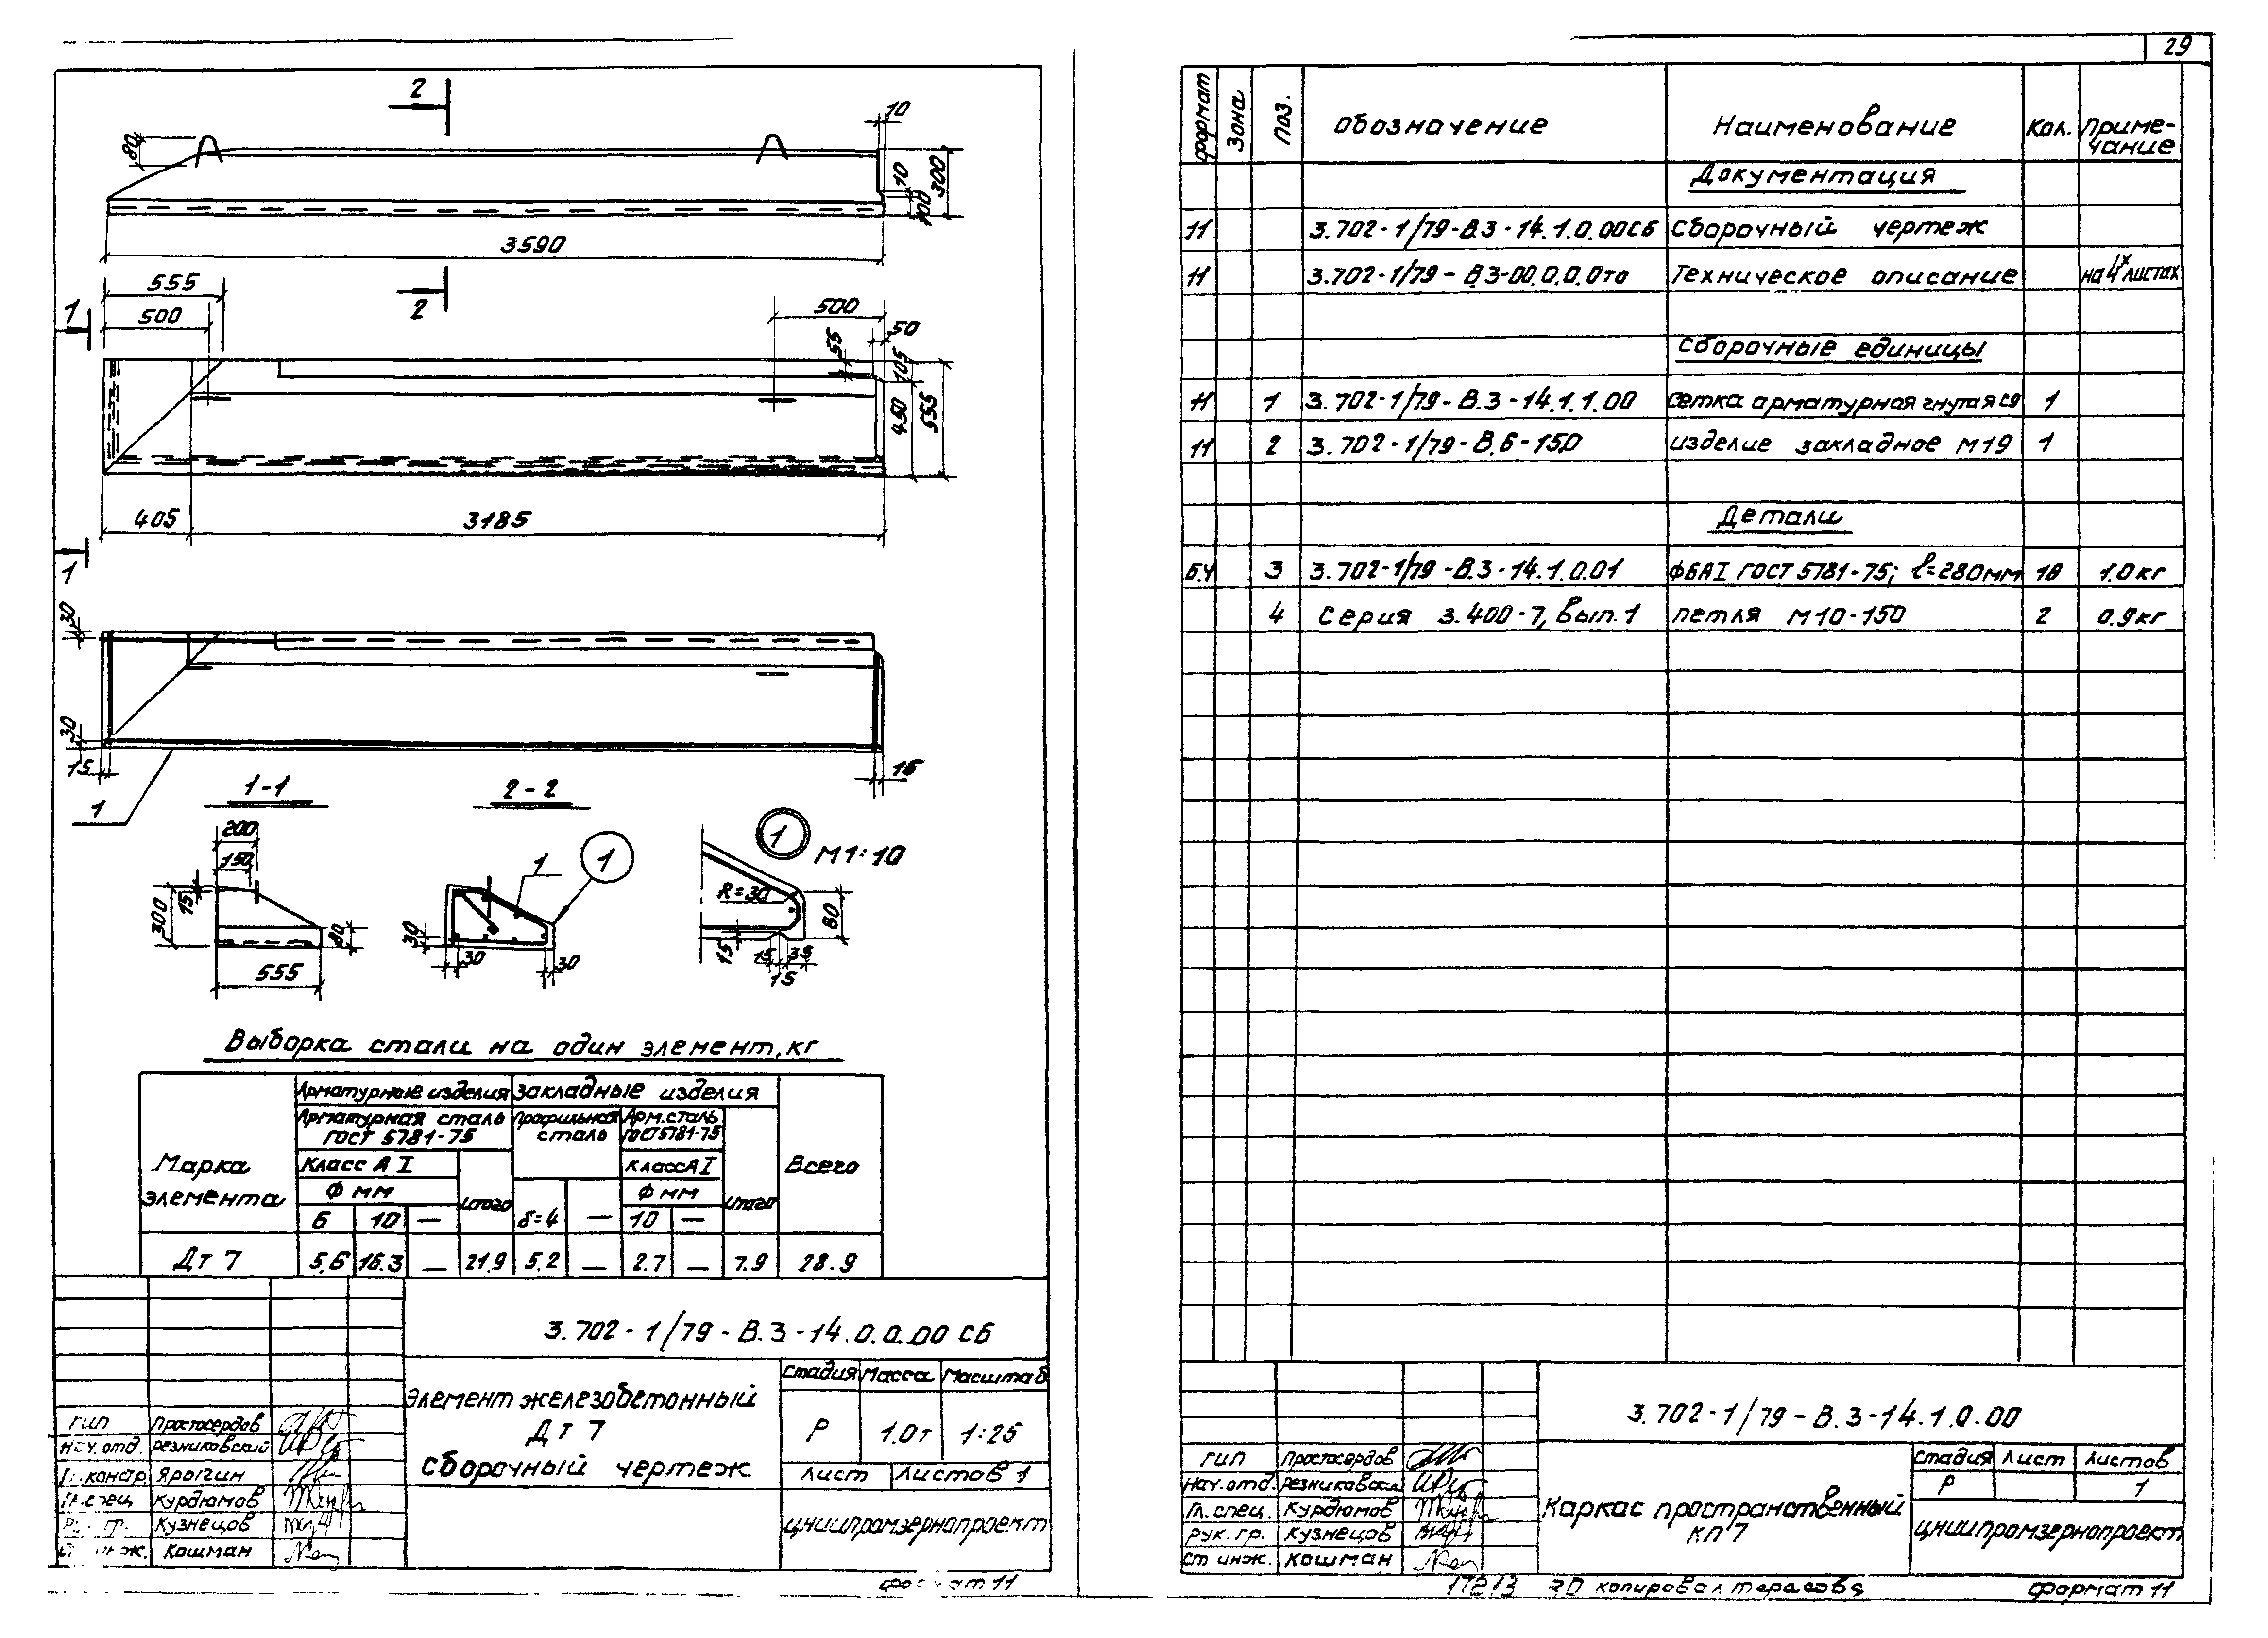 2
10
80
10
300
100
3590
555
2
500
500
1
50
55
105
450
555
405
3185
1
30
30
15
15
1
1-1
2-2
200
150
300
15
80
555
1
1
30
30
30
1
М1:10
R=30
80
15
15
35
15
Выборка стали на один элемент, кг
Марка элемента
Арматурные изделия
Закладные изделия
Всего
Арматурная сталь ГОСТ 5781-75
Профильная сталь
Арм. сталь ГОСТ 5781-75
Класс А I
итого
Класс А I
итого
Ф мм
Ф мм
6 10 — δ=4 — 10 —
Дт 7 5,6 16.3 — 21.9 5.2 — 2.7 — 7.9 28.9
3.702-1/79-В.3-14.0.0.00 СБ
Элемент железобетонный
Дт 7
сборочный чертеж
Стадия Масса Масштаб
Р 1.0т 1:25
Лист Листов 1
ЦНИИпромзернопроект
ГИП Простосердов
Нач. отд. Резниковский
Гл. констр. Ярыгин
Гл. спец. Курдюмов
Кузнецов
Кошман
формат 11
29
Формат Зона Поз. Обозначение Наименование Кол. Приме-
чание
Документация
11 3.702-1/79-В.3-14.1.0.00СБ Сборочный чертеж
11 3.702-1/79-В.3-00.0.0.0то Техническое описание на 4х листах
Сборочные единицы
11 1 3.702-1/79-В.3-14.1.1.00 сетка арматурная гнутая с9 1
11 2 3.702-1/79-В.6-150 изделие закладное М19 1
Детали
Б.Ч 3 3.702-1/79-В.3-14.1.0.01 Ф6АI ГОСТ 5781-75; ℓ=280мм 16 1.0кг
4 Серия 3.400-7, вып.1 петля М10-150 2 0.9кг
3.702-1/79-В.3-14.1.0.00
Каркас пространственный
КП 7
Стадия Лист Листов
Р 1
ЦНИИпромзернопроект
ГИП Простосердов
Нач. отд. Резниковский
Гл. спец. Курдюмов
Рук. гр. Кузнецов
Ст инж. Кошман
17213 30 копировал Тарасова
формат 11